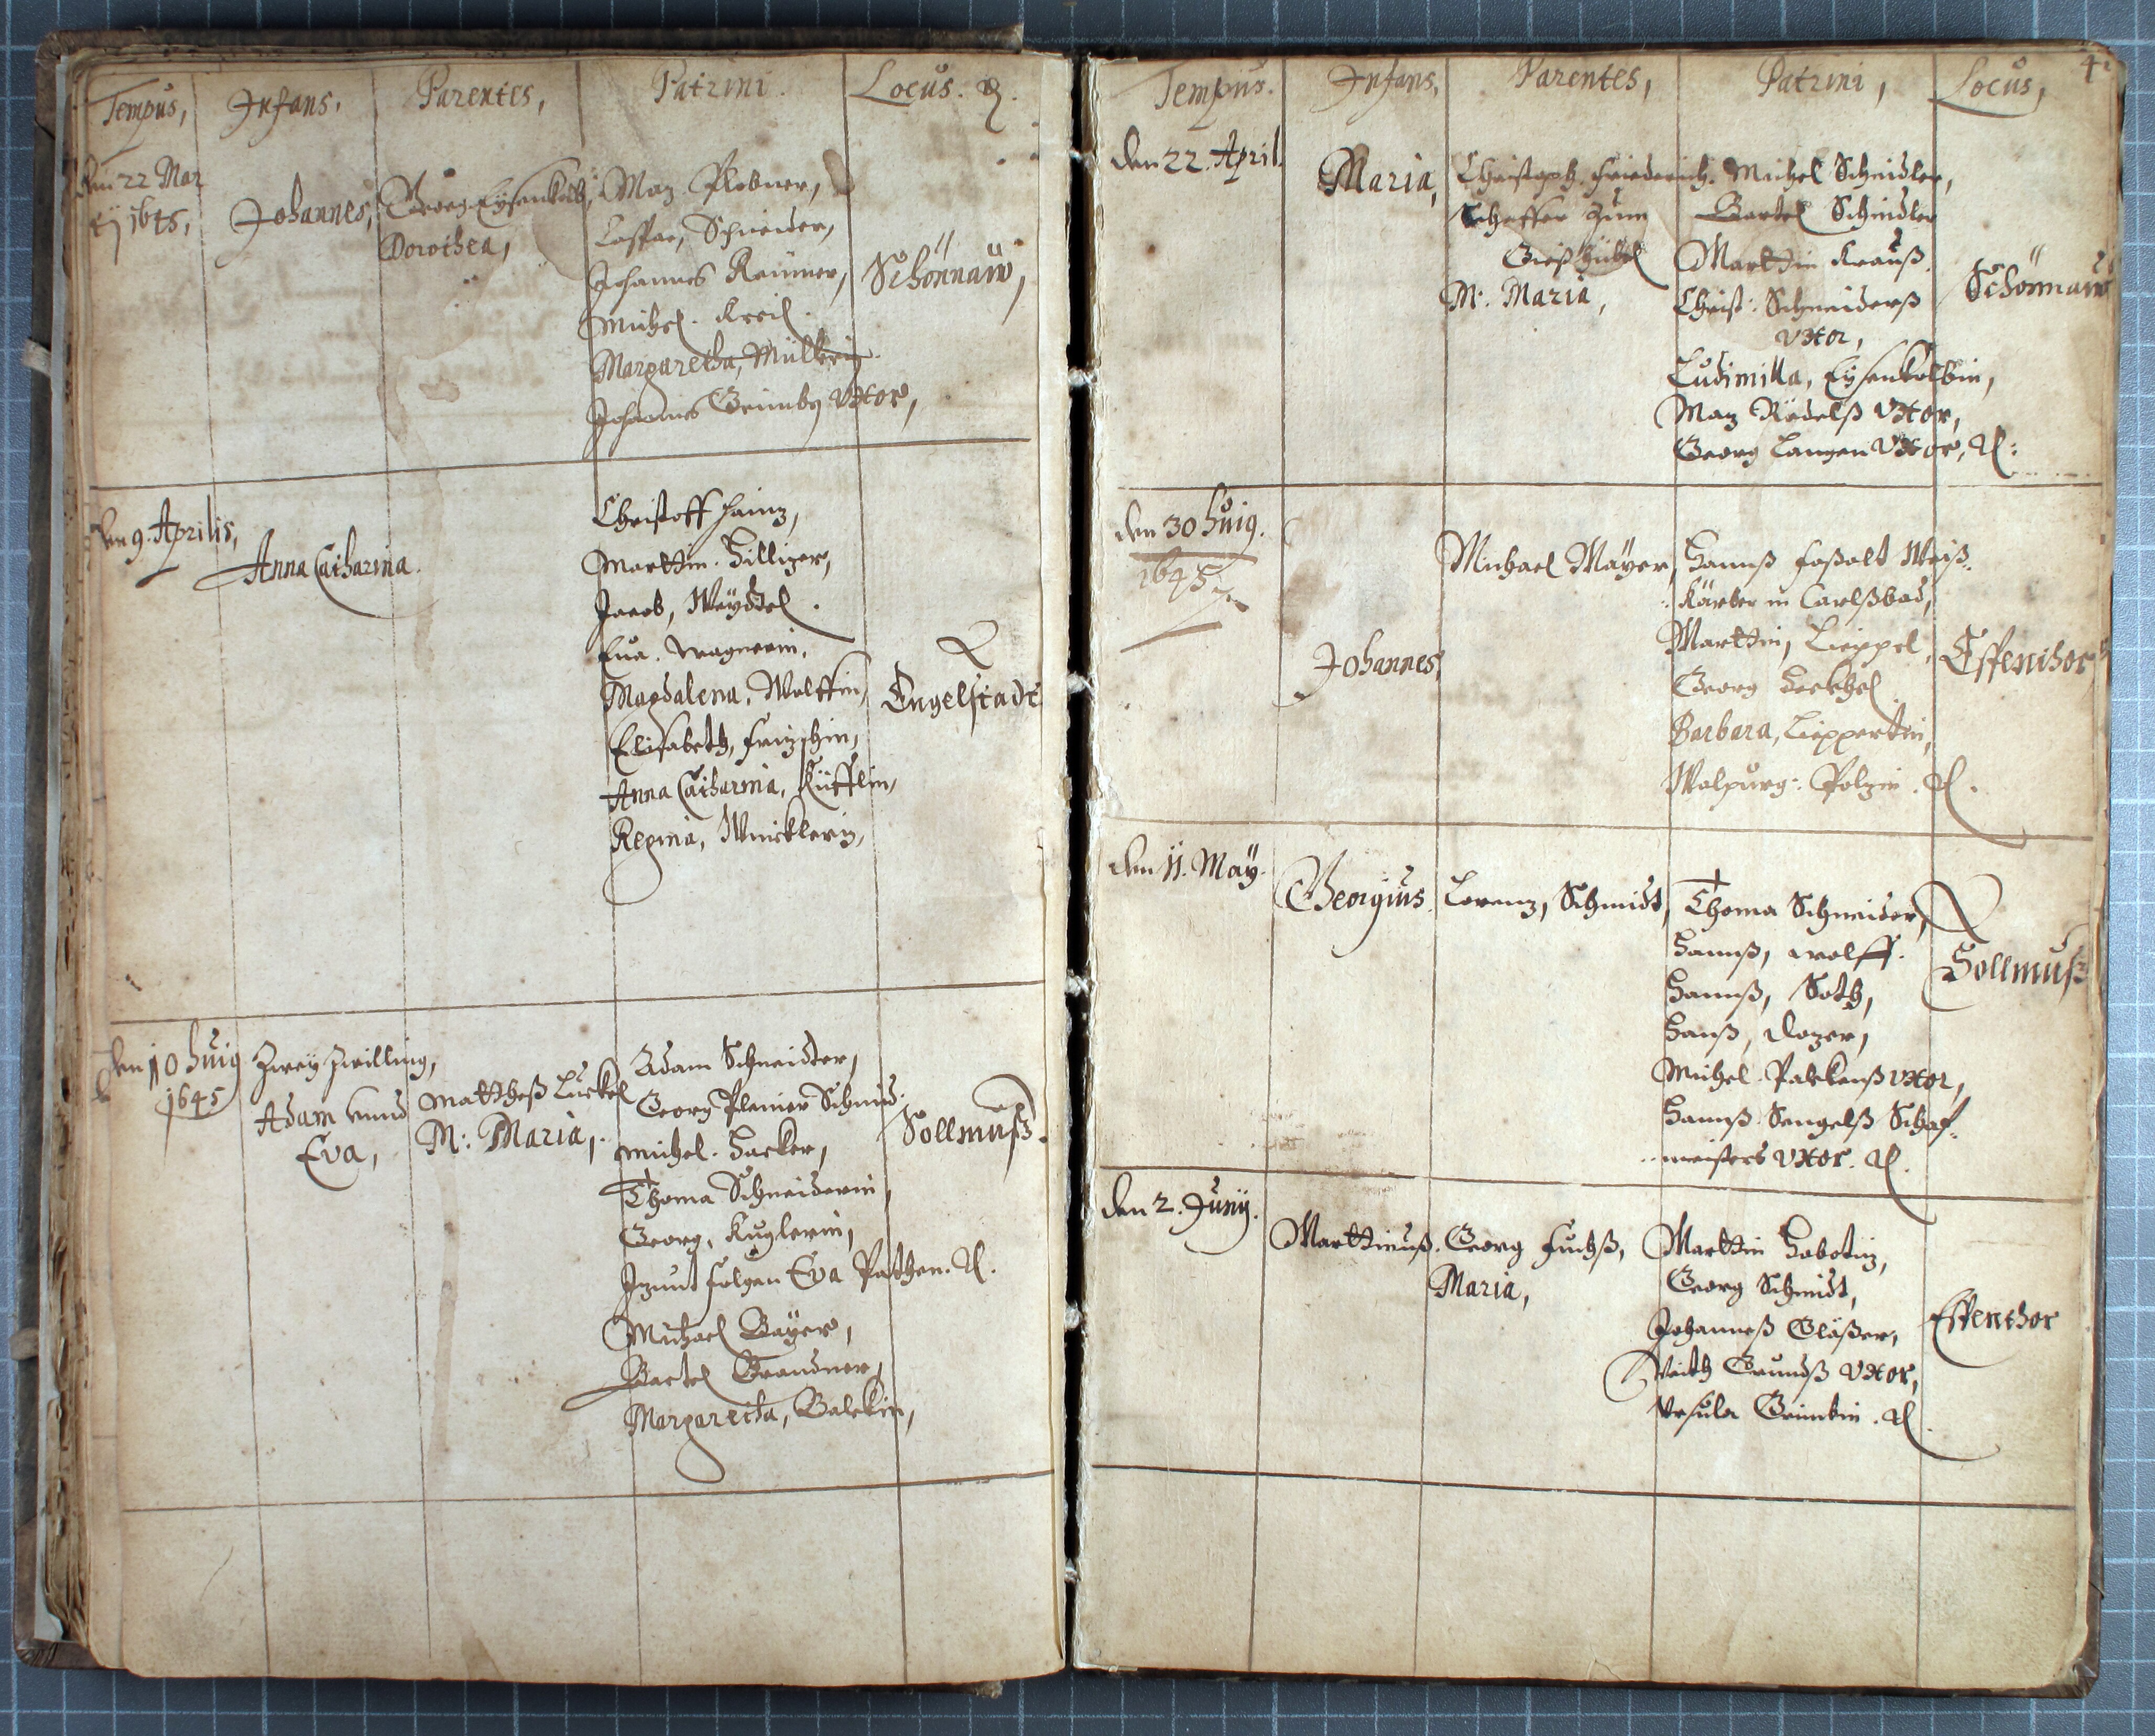 Tempus, Infans. Parentes, Patrini. Locus. ꝛc.
den 22 Mar
tij 1645,
Johannes,
Georg Eysenkolb,
Dorothea,
Maz Plobner,
Caspar, Schneider,
Johannes
Michel. Kreil.
Margaretha, Müllerin.
Johannes Grimbs Uxor,
Schönnaw,
den 9. Aprilis,
Anna Catharina.
Christoff Hainz,
Marttin. Hilliger,
Jacob, Weyddel.
Eua. Wagnerin,
Magdalena, Wolffin,
Elisabeth, Frizschin,
Anna Catharina, Küfflin,
Regina, Wincklerin,
Engelstadt
den 10 huig
1645
Zwey Zwilling,
Adam Vnnd
Eva,
Mattheß Luckel
M: Maria,
Adam Schneidter,
Georg Plenier Schmid.
Michel. Hacker,
Thoma Schneiderin,
Georg, Kuglerin,
Izunt folgen Eva Pathen. ꝛc.
Michael Bayer,
Bartel Grandner,
Margaretha, Balckin,
Sollmuß.
4
Tempus. Infans, Parentes, Patrini, Locus,
den 22. April.
Maria,
Christoph Friederich.
Schaffer zum
Gießhübel
M: Maria,
Michel Schindler,
Bartel Schindler
Marttin Krauß.
Christ: Schneiderß
Uxor,
Ludimilla, Eysenkolbin,
Maz Rödelß Uxor,
Georg Langen Uxor, ꝛc:
Schönnaw
den 30 huig.
1645
Johannes,
Michael Mayer,
Hannß Faßolt Weiß
Färber in Carlßbad,
Marttin, Lippel,
Georg Heckhel
Barbara, Lippertin,
Walpurg: Polzin. ꝛc.
Essenthor
den 11. May.
Georgius.
Lorenz, Schmidt,
Thoma Schneider,
Hannß, Wolff.
Hannß, Roth,
Hanß, Rozer,
Michel Palckenß Uxor,
Hannß Sengelß Schaf-
meisters Uxor. ꝛc.
Sollmuß
den 2. Juny.
Marttinuß.
Georg Fuchß,
Maria,
Marttin Habotiz,
Georg Schmidt,
Johanneß Gläßer,
Veith Grundß Uxor,
Vrsula Grimbin. ꝛc
Essenthor